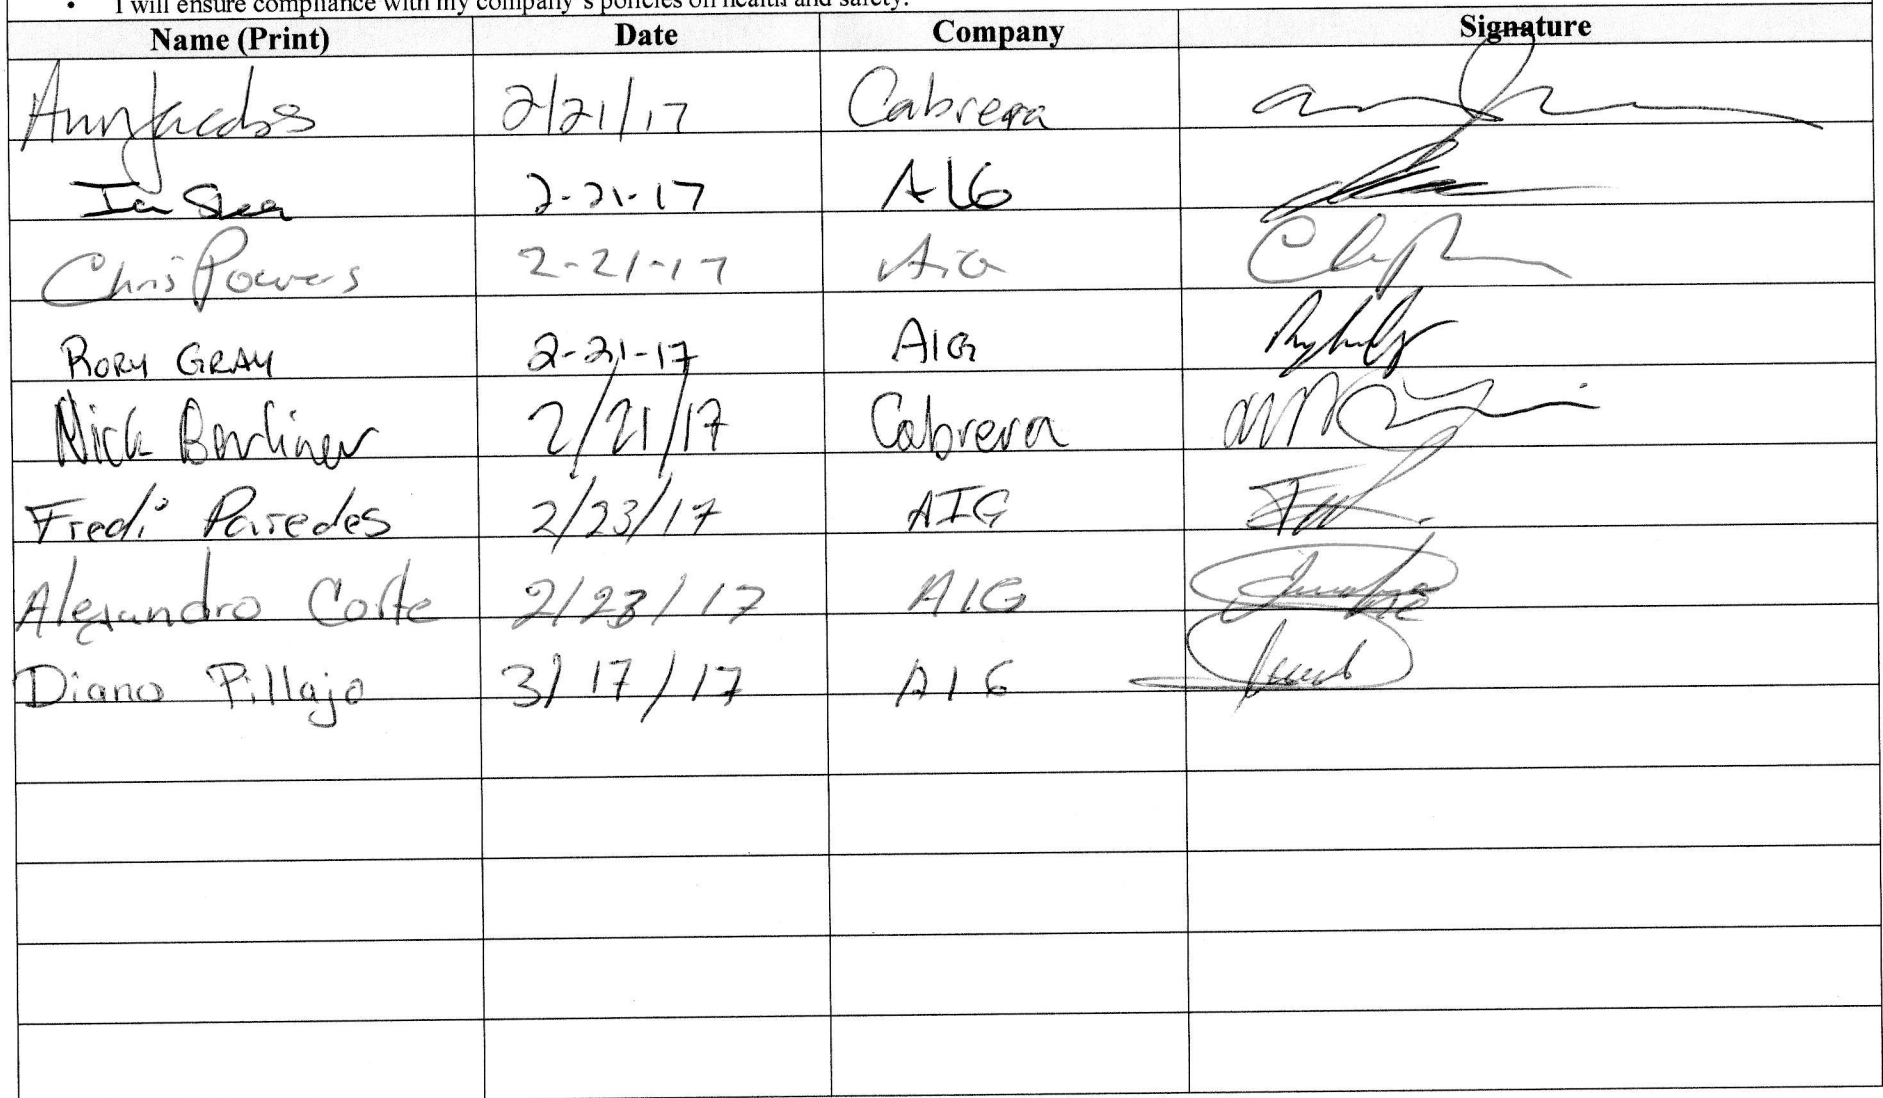 • I will ensure compliance with my company's policies on health and safety.
Name (Print) Date Company Signature
Ann Jacobs 2/21/17 Cabrera
2-21-17 AIG
Chris Powers 2-21-17 AIG
RORY GRAY 2-21-17 AIG
Nick Berliner 2/21/17 Cabrera
Fredi Paredes 2/23/17 AIG
Alejandro Corte 2/23/17 AIG
Diano Pillajo 3/17/17 AIG